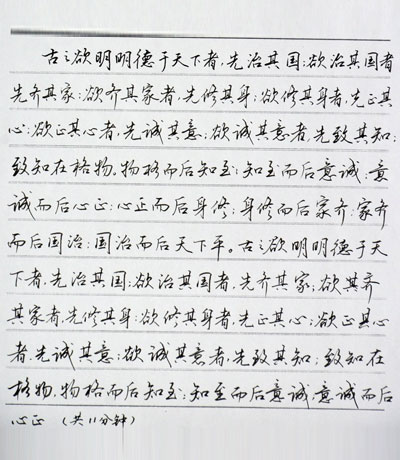 古之欲明明德于天下者,先治其国;欲治其国者
先齐其家;欲齐其家者,先修其身;欲修其身者,先正其
心;欲正其心者,先诚其意;欲诚其意者,先致其知;
致知在格物。物格而后知至;知至而后意诚;意
诚而后心正;心正而后身修;身修而后家齐;家齐
而后国治;国治而后天下平。古之欲明明德于天
下者,先治其国;欲治其国者,先齐其家;欲其齐
其家者,先修其身;欲修其身者,先正其心;欲正其心
者,先诚其意;欲诚其意者,先致其知;致知在
格物,物格而后知至;知至而后意诚,意诚而后
心正 (共11分钟)